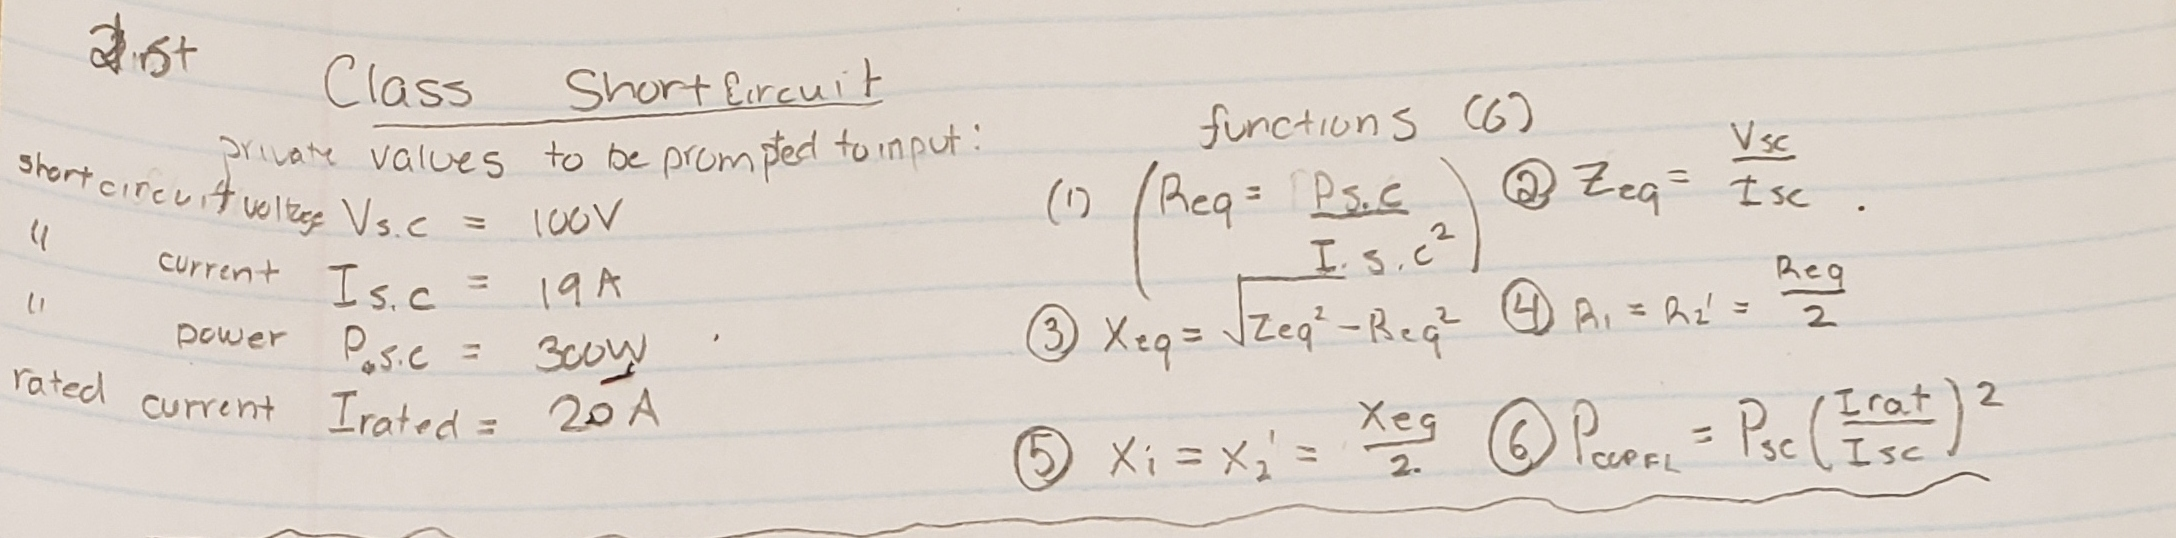 1.st
Class ShortCircuit
private values to be prompted to input:
short circuit voltage Vs.c = 100V
" current Is.c = 19A
" power Ps.c = 300W
rated current Irated = 20A
functions (6)
(1) (Req = Ps.c / I.s.c²) ② Zeq = Vsc / Isc .
③ Xeq = √Zeq² - Req² ④ R₁ = R₂' = Req / 2
⑤ X₁ = X₂' = Xeq / 2. ⑥ P = Psc (Irat / Isc)²